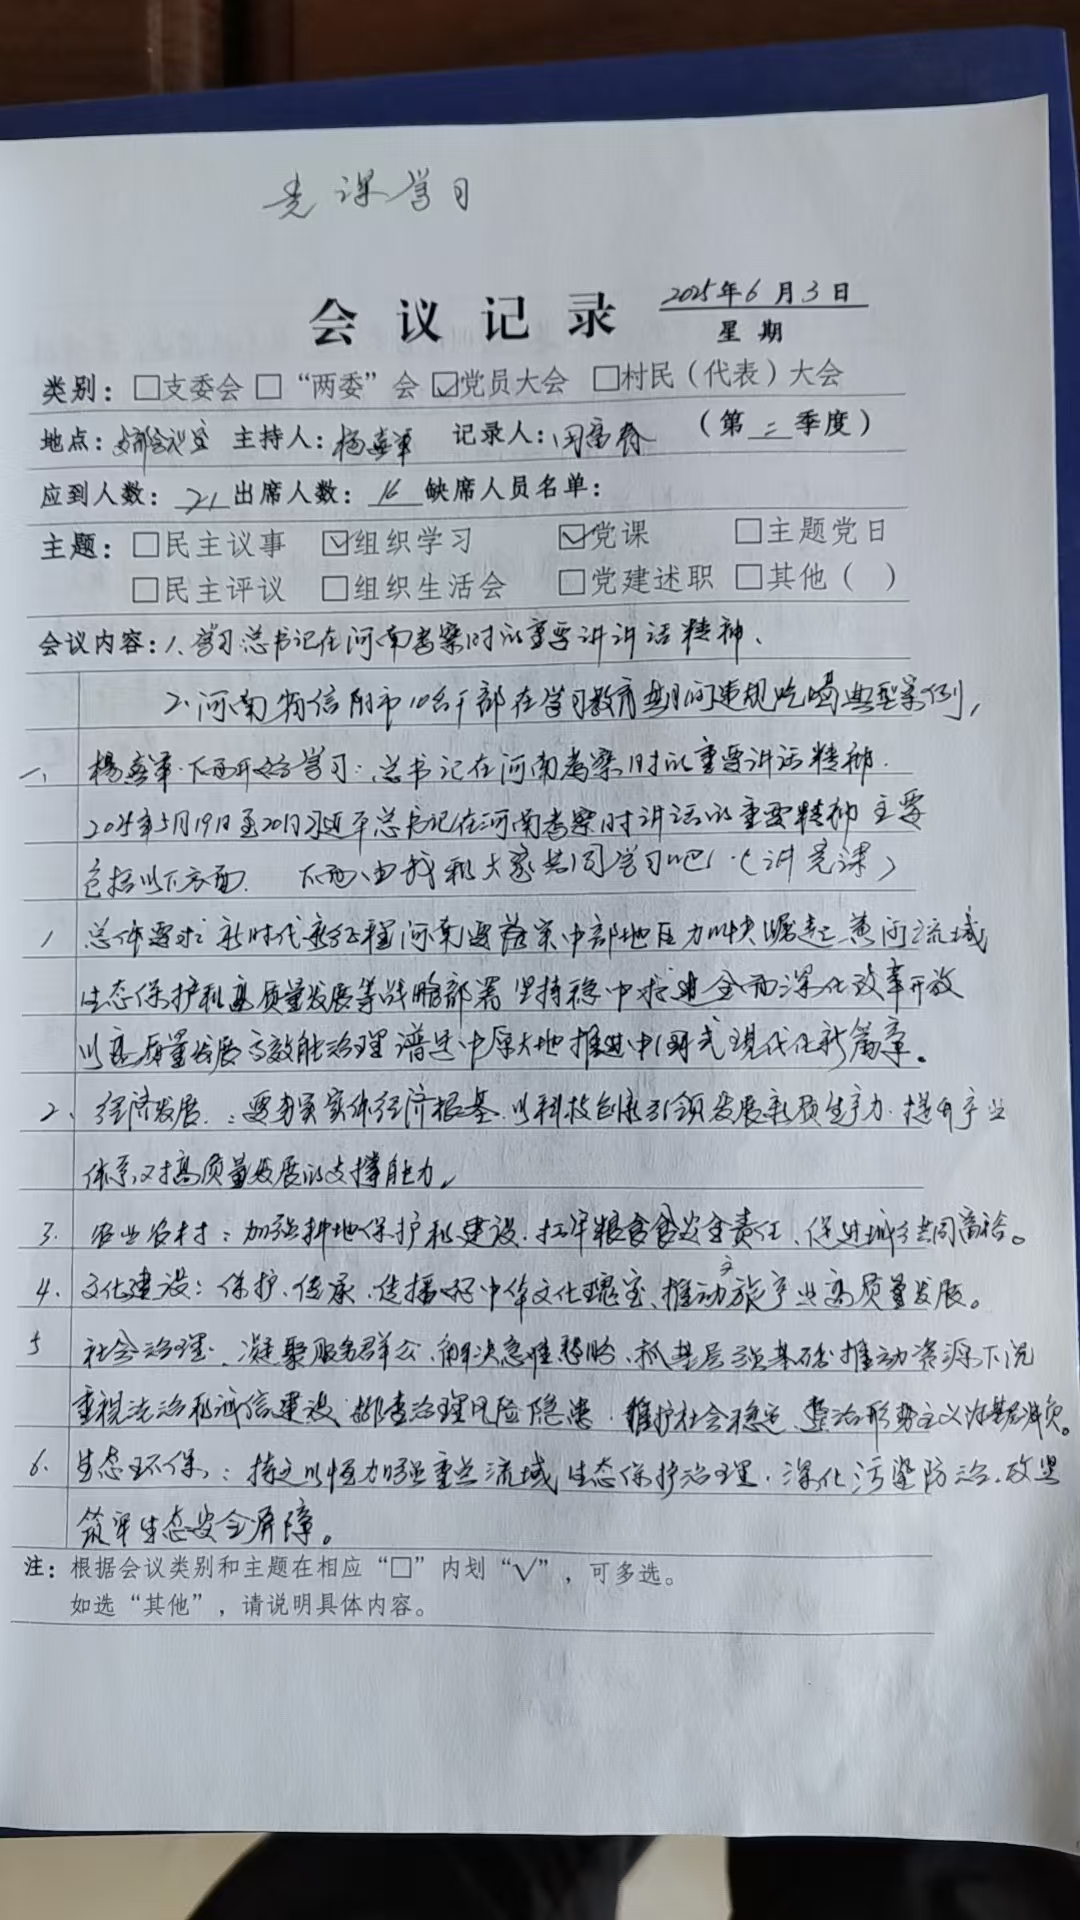 党课学习
会议记录 2025年6月3日
星期
类别：□支委会 □“两委”会 ☑党员大会 □村民（代表）大会
地点：支部会议室 主持人：杨喜军 记录人：闫富春 （第二季度）
应到人数：21 出席人数：16 缺席人员名单：
主题：□民主议事 ☑组织学习 ☑党课 □主题党日
□民主评议 □组织生活会 □党建述职 □其他（ ）
会议内容：1、学习总书记在河南考察时的重要讲讲话精神、
2、河南省信阳市10名干部在学习教育期间违规吃喝典型案例，
一、 杨喜军：下面开始学习：总书记在河南考察时的重要讲话精神．
2025年5月19日至20日习近平总书记在河南考察时讲话的重要精神主要
包括以下方面． 下面由我和大家共同学习吧！（讲党课）
1 总体要求：新时代新征程河南要落实中部地区加快崛起、黄河流域
生态保护和高质量发展等战略部署 坚持稳中求进 全面深化改革开放
以高质量发展 高效能治理 谱写中原大地推进中国式现代化新篇章。
2、 经济发展：要夯实实体经济根基、以科技创新引领发展新质生产力、提升产业
体系对高质量发展的支撑能力，
3. 农业农村：加强耕地保护和建设、扛牢粮食食安全责任、促进城乡共同富裕。
4、 文化建设：保护、传承、传播好中华文化瑰宝、推动文旅产业高质量发展。
5 社会治理：凝聚服务群众、解决急难愁盼、抓基层强基础 推动资源下沉
重视法治和诚信建设 排查治理风险隐患、维护社会稳定、整治形势主义为基层减负。
6. 生态环保：持之以恒加强重点流域生态保护治理、深化污染防治、
筑牢生态安全屏障。
注：根据会议类别和主题在相应“□”内划“√”，可多选。
如选“其他”，请说明具体内容。